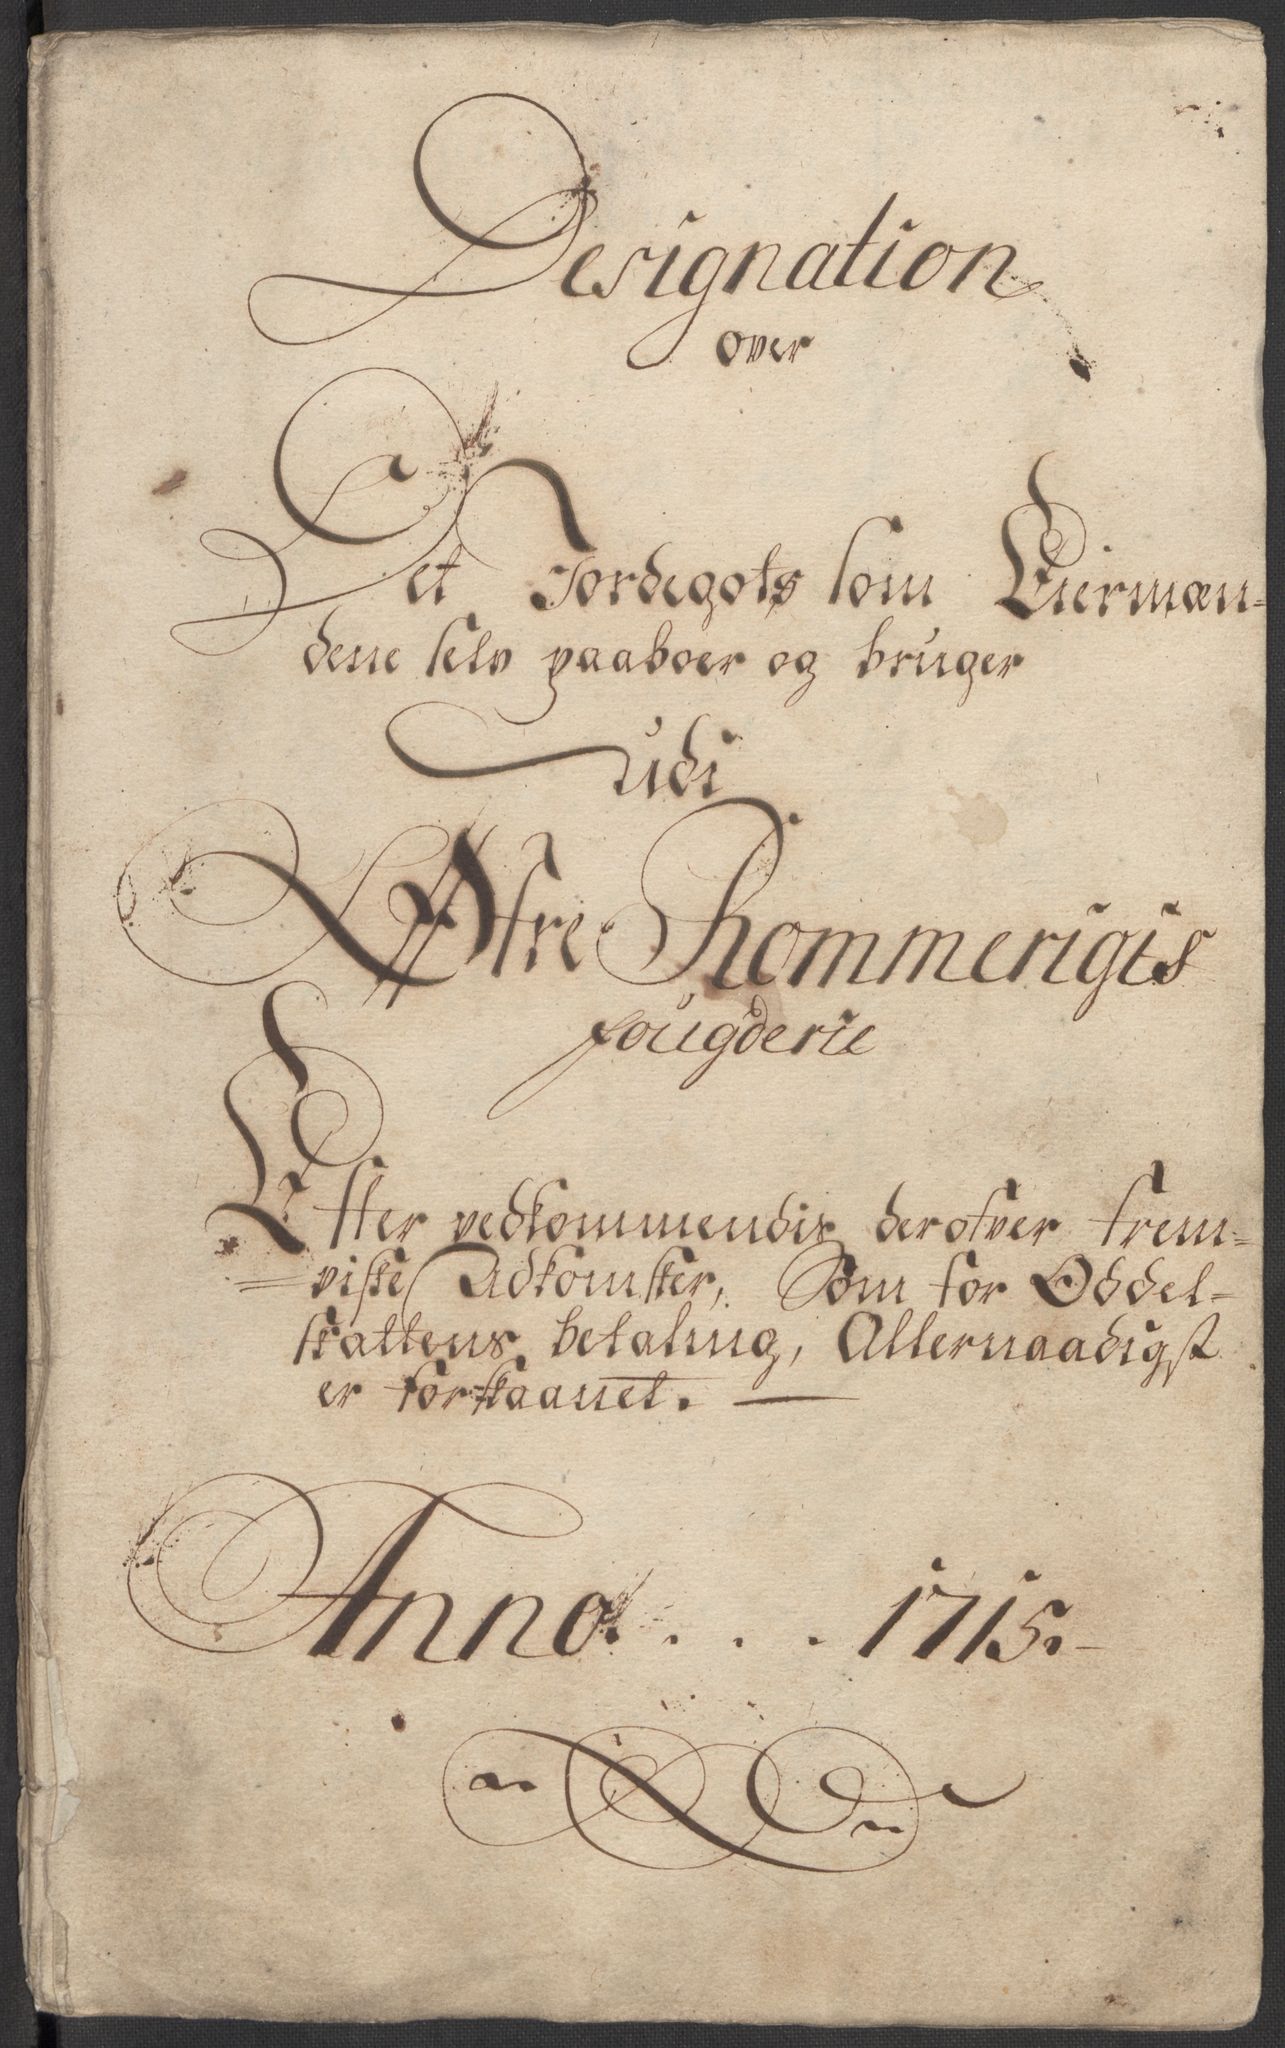 Designation
over
Det Jordegots som Eiermæn-
dene selv paaboer og bruger
udi
Øfre Rommerigis
fougderie
Efter vedkommendis derofver frem-
viste Adkomster, Som for Oddel-
skattens betaling, Allernaadigst
er forskaanet. —
Anno. . . . 1715.